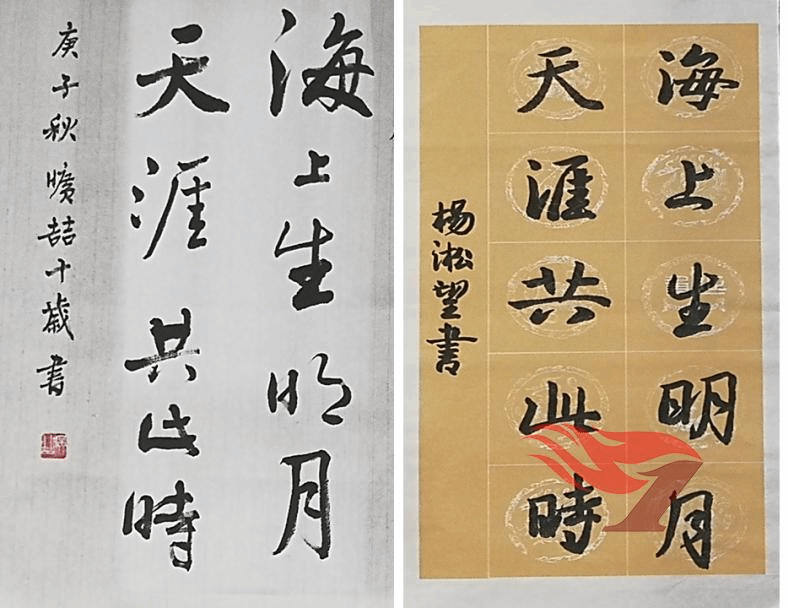 海上生明月
天涯共此時
庚子秋曠喆十歲書
海上生明月
天涯共此時
楊淞望書